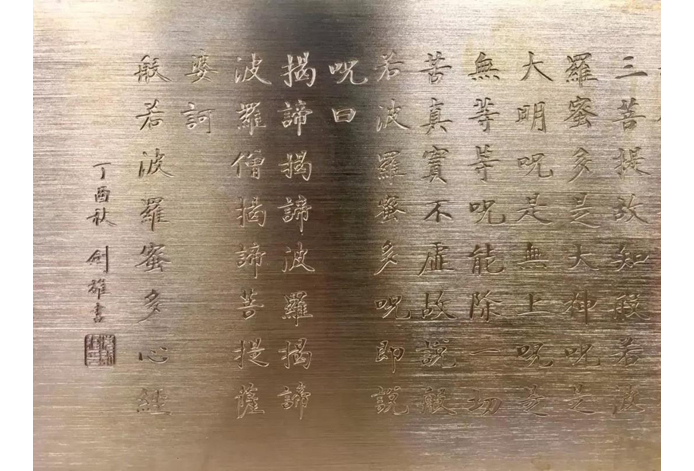 三菩提故知般若波
羅蜜多是大神呪是
大明呪是無上呪是
無等等呪能除一切
苦真實不虛故說般
若波羅蜜多呪即說
呪曰
揭諦揭諦波羅揭諦
波羅僧揭諦菩提薩
婆訶
般若波羅蜜多心經
丁酉秋 剑雄書